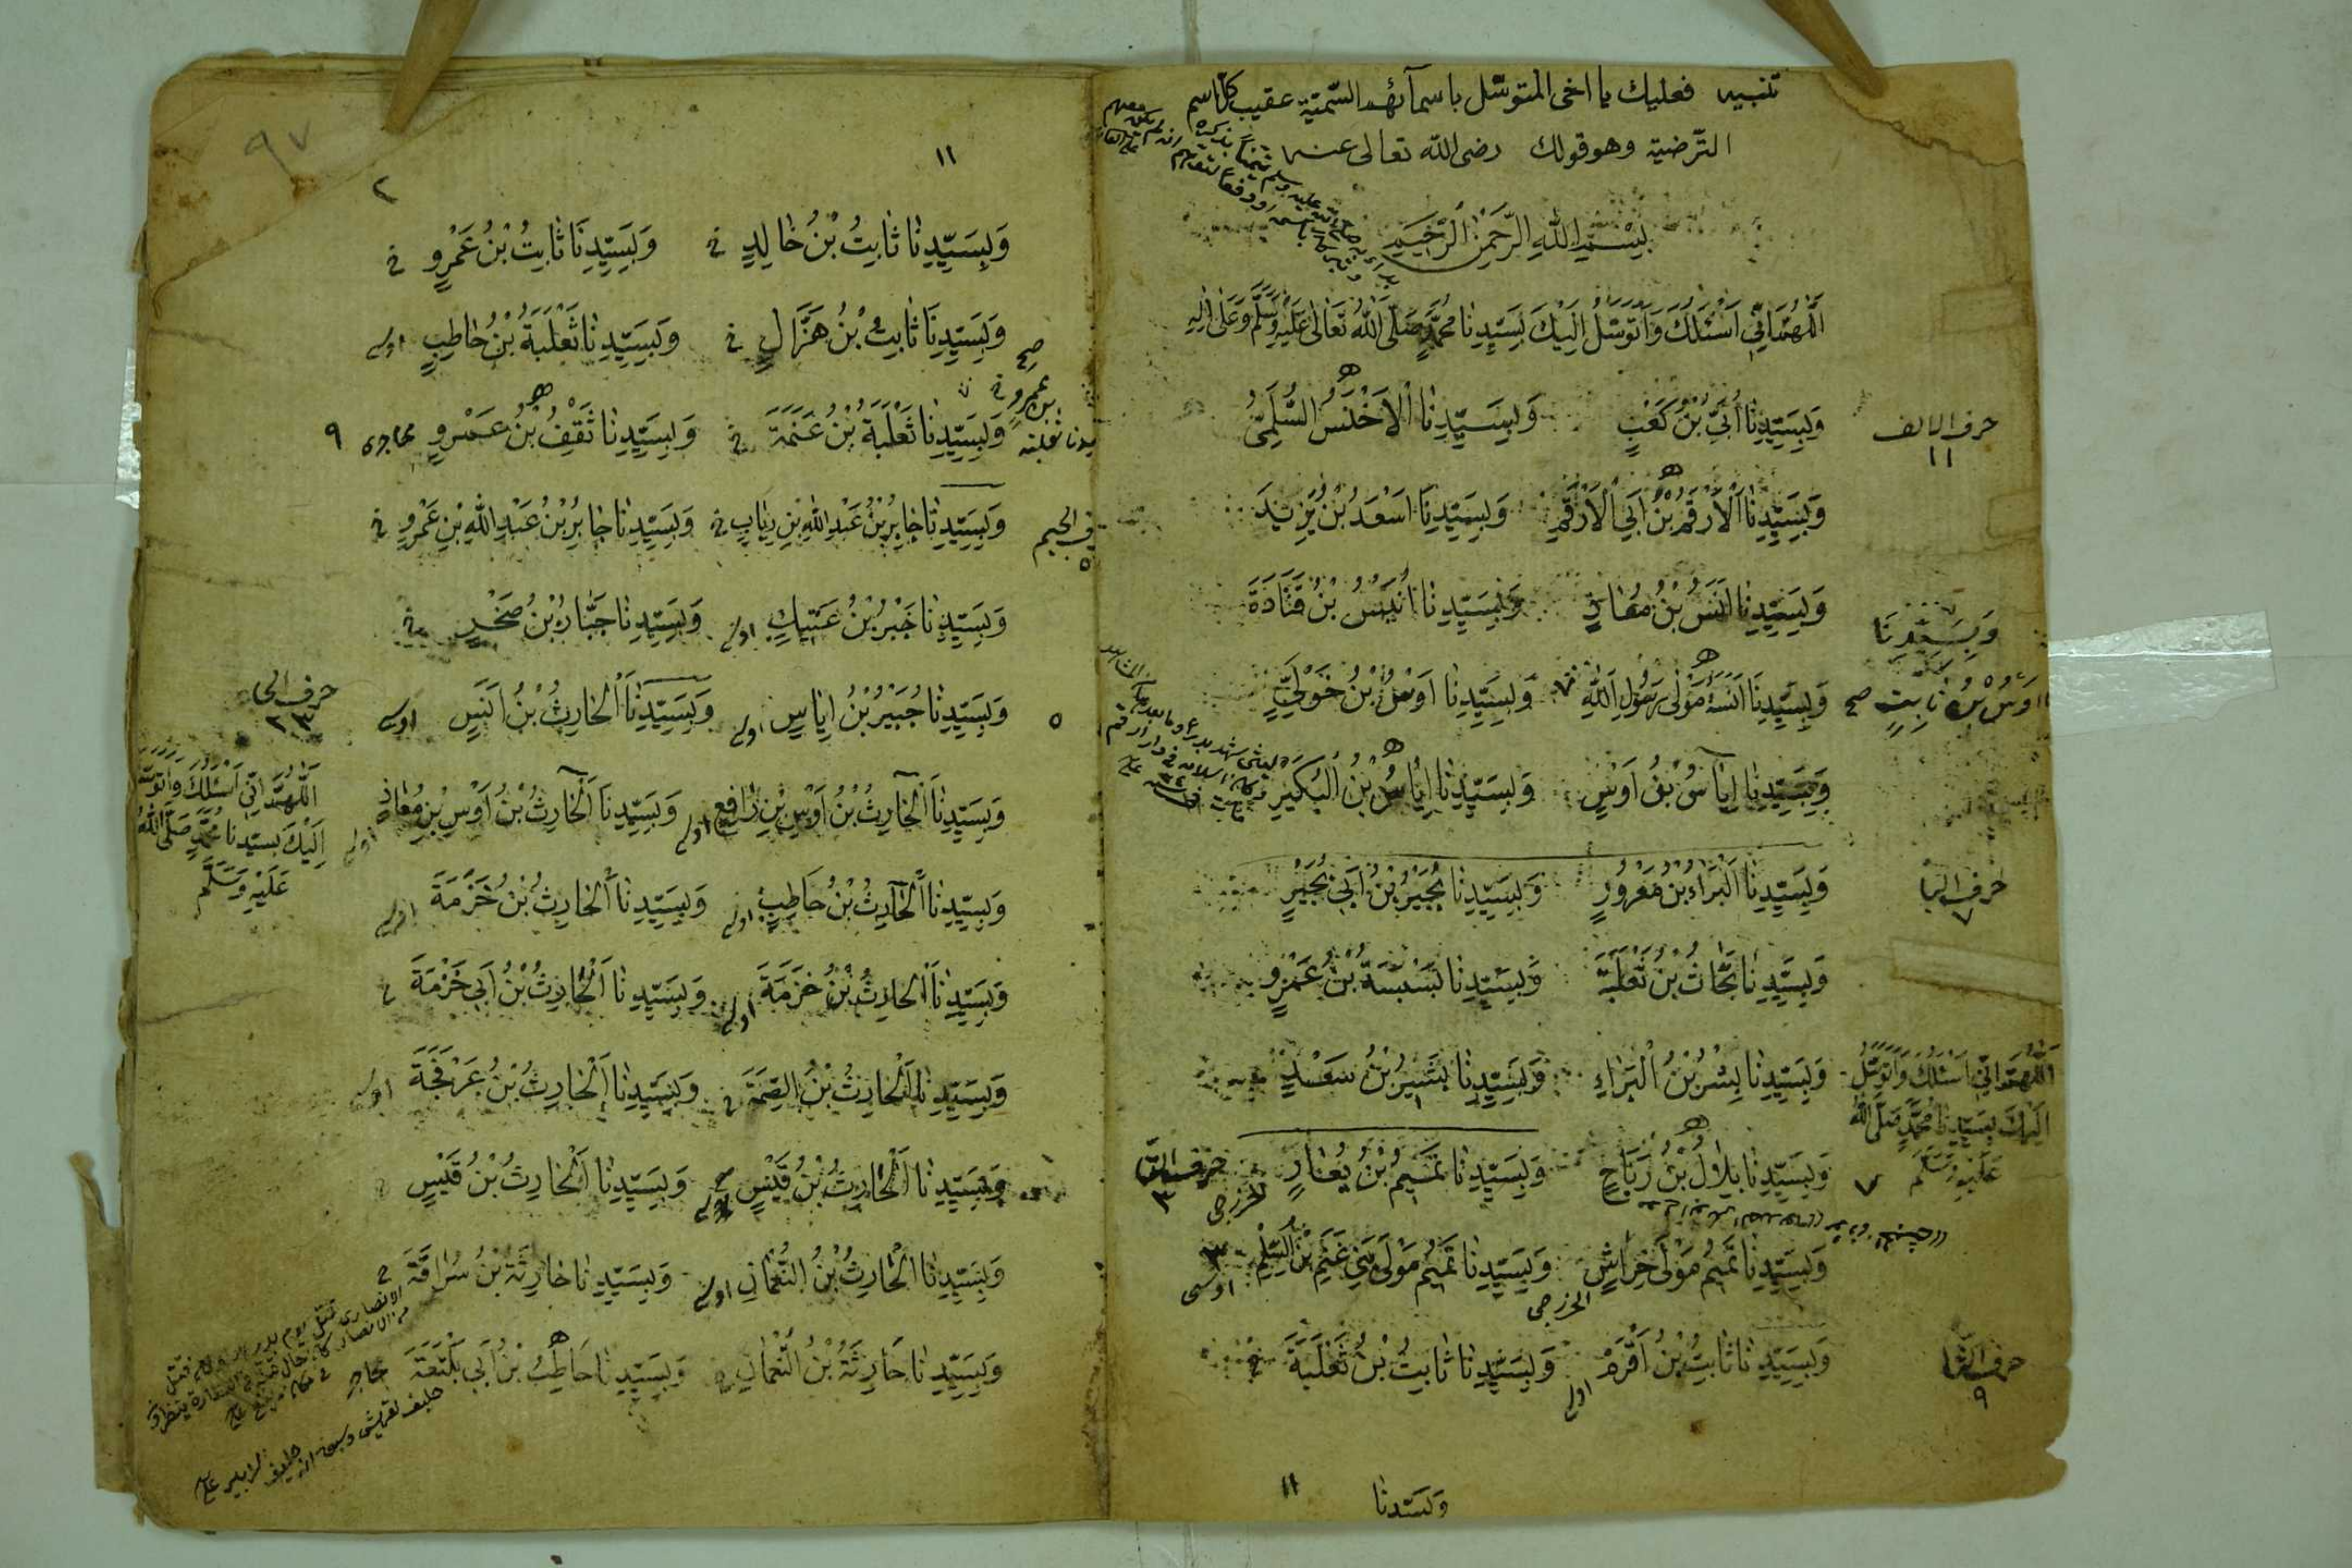 تنبيه فعليك يا اخي المتوسّل باسمآئهم السّميّة عقيب كلّ اسم
الترّضية وهو قولك رضى الله تعالى عنه
بِسْمِ اللهِ الرَّحْمٰنِ الرَّحِيمِ
اَللّٰهُمَّ اِنِّي اَسْئَلُكَ وَاَتَوَسَّلُ اِلَيْكَ بِسَيِّدِنَا مُحَمَّدٍ صَلَّى اللهُ تَعَالٰى عَلَيْهِ وَسَلَّمَ وَعَلٰى اٰلِهِ
حرف الالف
١١
وَبِسَيِّدِنَا اُبَيِّ بْنُ كَعْبٍ وَبِسَيِّدِنَا الْاَخْنَسُ السُّلَمِيُّ
وَبِسَيِّدِنَا الْاَرْقَمُ بْنُ اَبِي الْاَرْقَمِ وَبِسَيِّدِنَا اَسْعَدُ بْنُ يَزِيدَ
وَبِسَيِّدِنَا اَنَسُ بْنُ مُعَاذٍ وَبِسَيِّدِنَا اُنَيْسُ بْنُ قَتَادَةَ
وَبِسَيِّدِنَا
اَوْسُ بْنُ ثَابِتٍ صح
وَبِسَيِّدِنَا اَنَسَةُ مَوْلٰى رَسُولِ اللهِ وَبِسَيِّدِنَا اَوْسُ بْنُ خَوْلِيٍّ
وَبِسَيِّدِنَا اِيَاسُ بْنُ اَوْسٍ وَبِسَيِّدِنَا اِيَاسُ بْنُ الْبُكَيْرِ
حرف البا
٧
وَبِسَيِّدِنَا الْبَرَاءُ بْنُ مَعْرُورٍ وَبِسَيِّدِنَا بُجَيْرُ بْنُ اَبِي بُجَيْرٍ
وَبِسَيِّدِنَا بَحَّاثُ بْنُ ثَعْلَبَةَ وَبِسَيِّدِنَا بَسْبَسَةُ بْنُ عَمْرٍو
وَبِسَيِّدِنَا بِشْرُ بْنُ الْبَرَاءِ وَبِسَيِّدِنَا بَشِيرُ بْنُ سَعْدٍ
اَللّٰهُمَّ اِنِّي اَسْئَلُكَ وَاَتَوَسَّلُ
اِلَيْكَ بِسَيِّدِنَا مُحَمَّدٍ صَلَّى اللهُ
عَلَيْهِ وَسَلَّمَ ٧
وَبِسَيِّدِنَا بِلَالُ بْنُ رَبَاحٍ وَبِسَيِّدِنَا تَمِيمُ بْنُ يُعَارٍ خزرجى
حرف التا
٣
وَبِسَيِّدِنَا تَمِيمُ مَوْلٰى خِرَاشٍ الخزرجى وَبِسَيِّدِنَا تَمِيمُ مَوْلٰى بَنِي غَنْمِ بْنِ السِّلْمِ اوسى ٣
حرف الثا
٩
وَبِسَيِّدِنَا ثَابِتُ بْنُ اَقْرَمَ وَبِسَيِّدِنَا ثَابِتُ بْنُ ثَعْلَبَةَ
١١
وبسيّدنا
٩٧
٢
١١
وَبِسَيِّدِنَا ثَابِتُ بْنُ خَالِدٍ وَبِسَيِّدِنَا ثَابِتُ بْنُ عَمْرٍو
وَبِسَيِّدِنَا ثَابِتُ بْنُ هَزَّالٍ وَبِسَيِّدِنَا ثَعْلَبَةُ بْنُ حَاطِبٍ
صح
بن عمرو
وَبِسَيِّدِنَا ثَعْلَبَةُ بْنُ عَنَمَةَ وَبِسَيِّدِنَا ثَقْفُ بْنُ عَمْرٍو مهاجرى ٩
حرف الجيم
٥
وَبِسَيِّدِنَا جَابِرُ بْنُ عَبْدِ اللهِ بْنِ رِيَابٍ وَبِسَيِّدِنَا جَابِرُ بْنُ عَبْدِ اللهِ بْنِ عَمْرٍو
وَبِسَيِّدِنَا جَبْرُ بْنُ عَتِيكٍ وَبِسَيِّدِنَا جَبَّارُ بْنُ صَخْرٍ
٥
وَبِسَيِّدِنَا جُبَيْرُ بْنُ اِيَاسٍ وَبِسَيِّدِنَا اَلْحَارِثُ بْنُ اَنَسٍ
حرف الحا
٢٣
اَللّٰهُمَّ اِنِّي اَسْئَلُكَ وَاَتَوَسَّلُ
اِلَيْكَ بِسَيِّدِنَا مُحَمَّدٍ صَلَّى اللهُ
عَلَيْهِ وَسَلَّمَ
وَبِسَيِّدِنَا اَلْحَارِثُ بْنُ اَوْسِ بْنِ رَافِعٍ وَبِسَيِّدِنَا اَلْحَارِثُ بْنُ اَوْسِ بْنِ مُعَاذٍ
وَبِسَيِّدِنَا اَلْحَارِثُ بْنُ حَاطِبٍ وَبِسَيِّدِنَا اَلْحَارِثُ بْنُ خَزَمَةَ
وَبِسَيِّدِنَا اَلْحَارِثُ بْنُ خَزَمَةَ وَبِسَيِّدِنَا اَلْحَارِثُ بْنُ اَبِي خَزْمَةَ
وَبِسَيِّدِنَا اَلْحَارِثُ بْنُ الصِّمَّةَ وَبِسَيِّدِنَا اَلْحَارِثُ بْنُ عَرْفَجَةَ
وَبِسَيِّدِنَا اَلْحَارِثُ بْنُ قَيْسٍ وَبِسَيِّدِنَا اَلْحَارِثُ بْنُ قَيْسٍ
وَبِسَيِّدِنَا اَلْحَارِثُ بْنُ النُّعْمَانِ وَبِسَيِّدِنَا حَارِثَةُ بْنُ سُرَاقَةَ
وَبِسَيِّدِنَا حَارِثَةُ بْنُ النُّعْمَانِ وَبِسَيِّدِنَا حَاطِبُ بْنُ اَبِي بَلْتَعَةَ